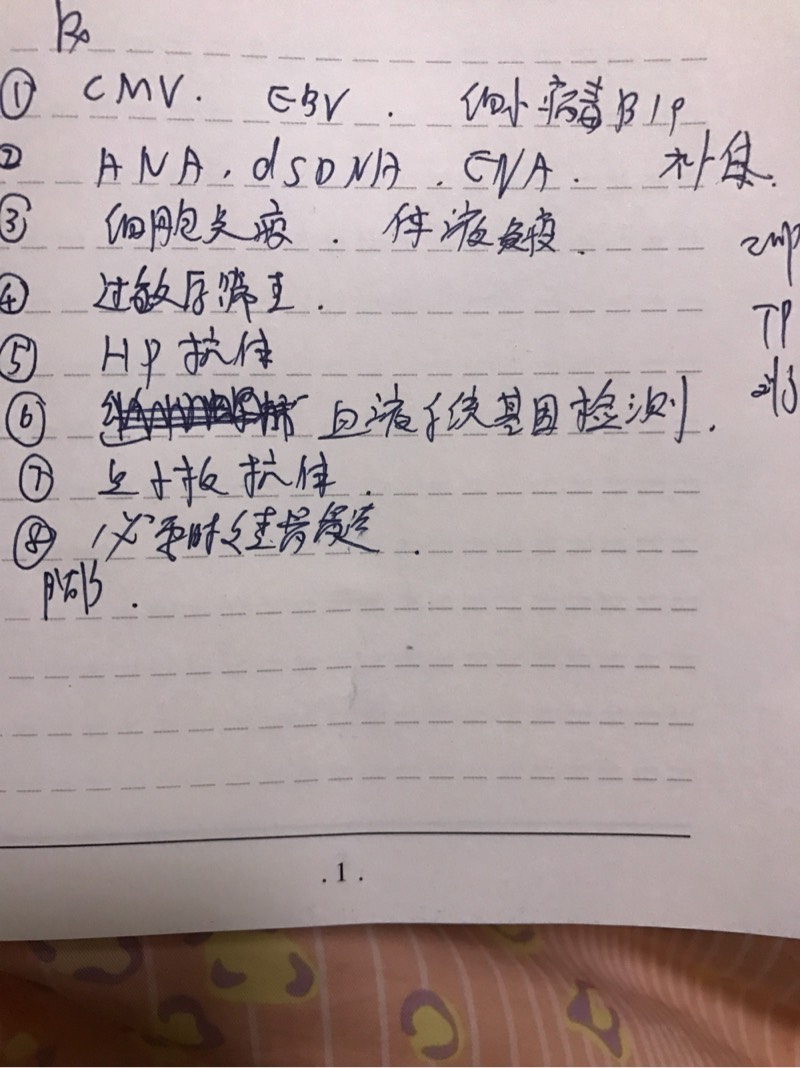 Rp
① CMV. EBV. 细小病毒B19
② ANA. dsDNA. ENA. 补体.
③ 细胞免疫. 体液免疫.
④ 过敏原筛查.
⑤ HP抗体
⑥ 血液系统基因检测.
⑦ 血小板抗体.
⑧ 必要时复查骨髓.
TP
.1.